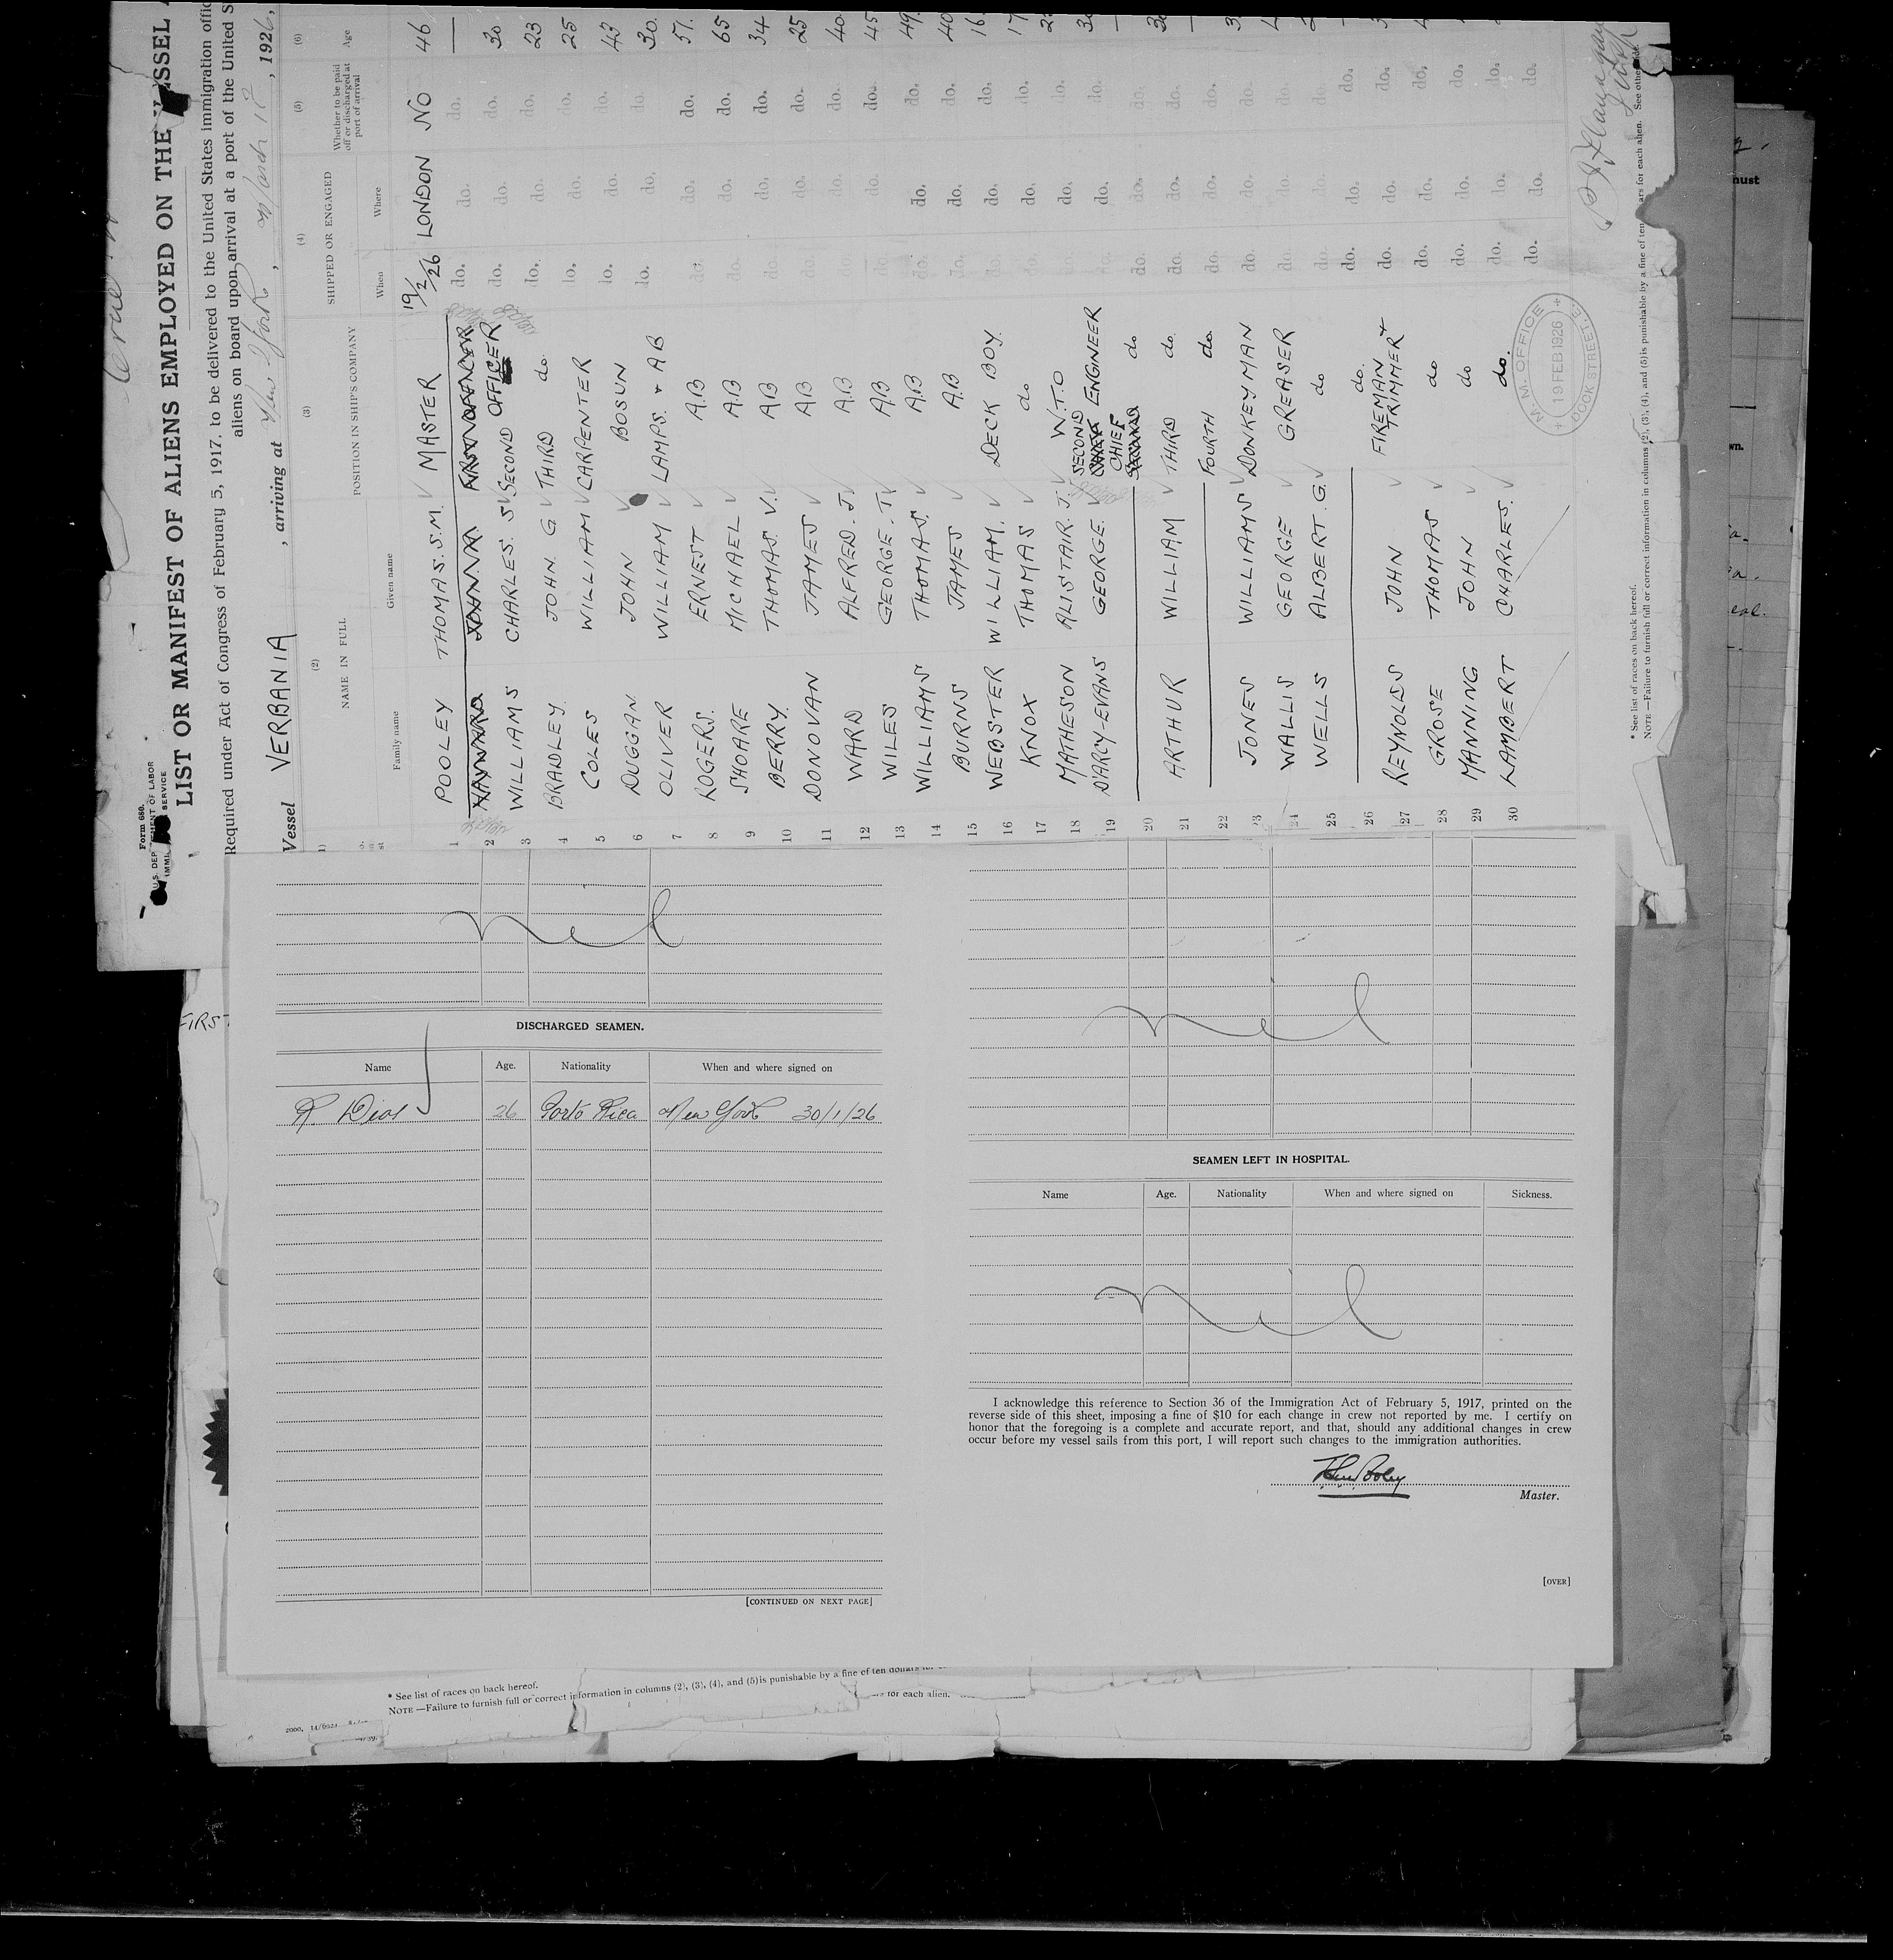 Form 680.
U.S. DEP EMENT OF LABOR
IMMI SERVICE
LIST OR MANIFEST OF ALIENS EMPLOYED ON THE
Required under Act of Congress of February 5, 1917, to be delivered to the United States immigration
aliens on board upon arrival at a port of the United
Vessel VERBANIA , arriving at New York , March 17 , 1926,
(2) (3) (4) (5) (6)
NAME IN FULL POSITION IN SHIP'S COMPANY SHIPPED OR ENGAGED Whether to be paid off or discharged at port of arrival Age
Family name Given name When Where
1 POOLEY THOMAS.S.M. MASTER 19/2/26 LONDON NO 46
2 do. do. do. —
WILLIAMS CHARLES. S SECOND OFFICER do. do. do. 30
3 BRADLEY. JOHN. G THIRD do. do. do. do. 23
4 COLES WILLIAM CARPENTER do. do. do. 25
5 DUGGAN. JOHN BOSUN do. do. do. 43
6 OLIVER WILLIAM LAMPS. + AB do. do. do. 30.
7 ROGERS. ERNEST A.B do. do. do. 57.
8 SHOARE MICHAEL A.B do. do. do. 65
9 BERRY. THOMAS. V. AB do. do. do. 34
10 DONOVAN JAMES AB do. do. do. 25
11 WARD ALFRED. J. A.B do. do. do. 40.
12 WILES GEORGE. T. AB do. do. do. 45
13 WILLIAMS THOMAS. A.B do. do. do. 49.
14 BURNS JAMES A.B do. do. do. 40
15 WEBSTER WILLIAM. DECK BOY. do. do. do. 16
16 KNOX THOMAS do do. do. do. 17
17 MATHESON ALISTAIR. J. W.T.O do. do. do.
18 D'ARCY-EVANS GEORGE. SECOND ENGINEER do. do. do.
19 CHIEF do do. do. do. —
20 ARTHUR WILLIAM THIRD do. do. do. do.
21 FOURTH do. do. do. do. —
22 JONES WILLIAMS DONKEYMAN do. do. do.
23 WALLIS GEORGE GREASER do. do. do.
24 WELLS ALBERT. G. do do. do. do.
25 do. do. do. do.
26 REYNOLDS JOHN FIREMAN + TRIMMER do. do. do.
27 GROSE THOMAS do do. do. do.
28 MANNING JOHN do do. do. do.
29 LAMBERT CHARLES. do. do. do. do.
30 do. do. do.
M.M. OFFICE
19 FEB 1926
DOCK STREET. E.
* See list of races on back hereof.
NOTE —Failure to furnish full or correct information in columns (2), (3), (4), and (5) is punishable by a fine of ten ars for each alien. See other side.
nil
DISCHARGED SEAMEN.
Name Age. Nationality When and where signed on
R. Dias 26 Porto Rica New York 30/1/26
[CONTINUED ON NEXT PAGE]
nil
SEAMEN LEFT IN HOSPITAL.
Name Age. Nationality When and where signed on Sickness.
nil
I acknowledge this reference to Section 36 of the Immigration Act of February 5, 1917, printed on the
reverse side of this sheet, imposing a fine of $10 for each change in crew not reported by me. I certify on
honor that the foregoing is a complete and accurate report, and that, should any additional changes in crew
occur before my vessel sails from this port, I will report such changes to the immigration authorities.
Master.
[OVER]
FIRST
* See list of races on back hereof.
NOTE —Failure to furnish full or correct information in columns (2), (3), (4), and (5) is punishable by a fine of ten dollars
for each alien.